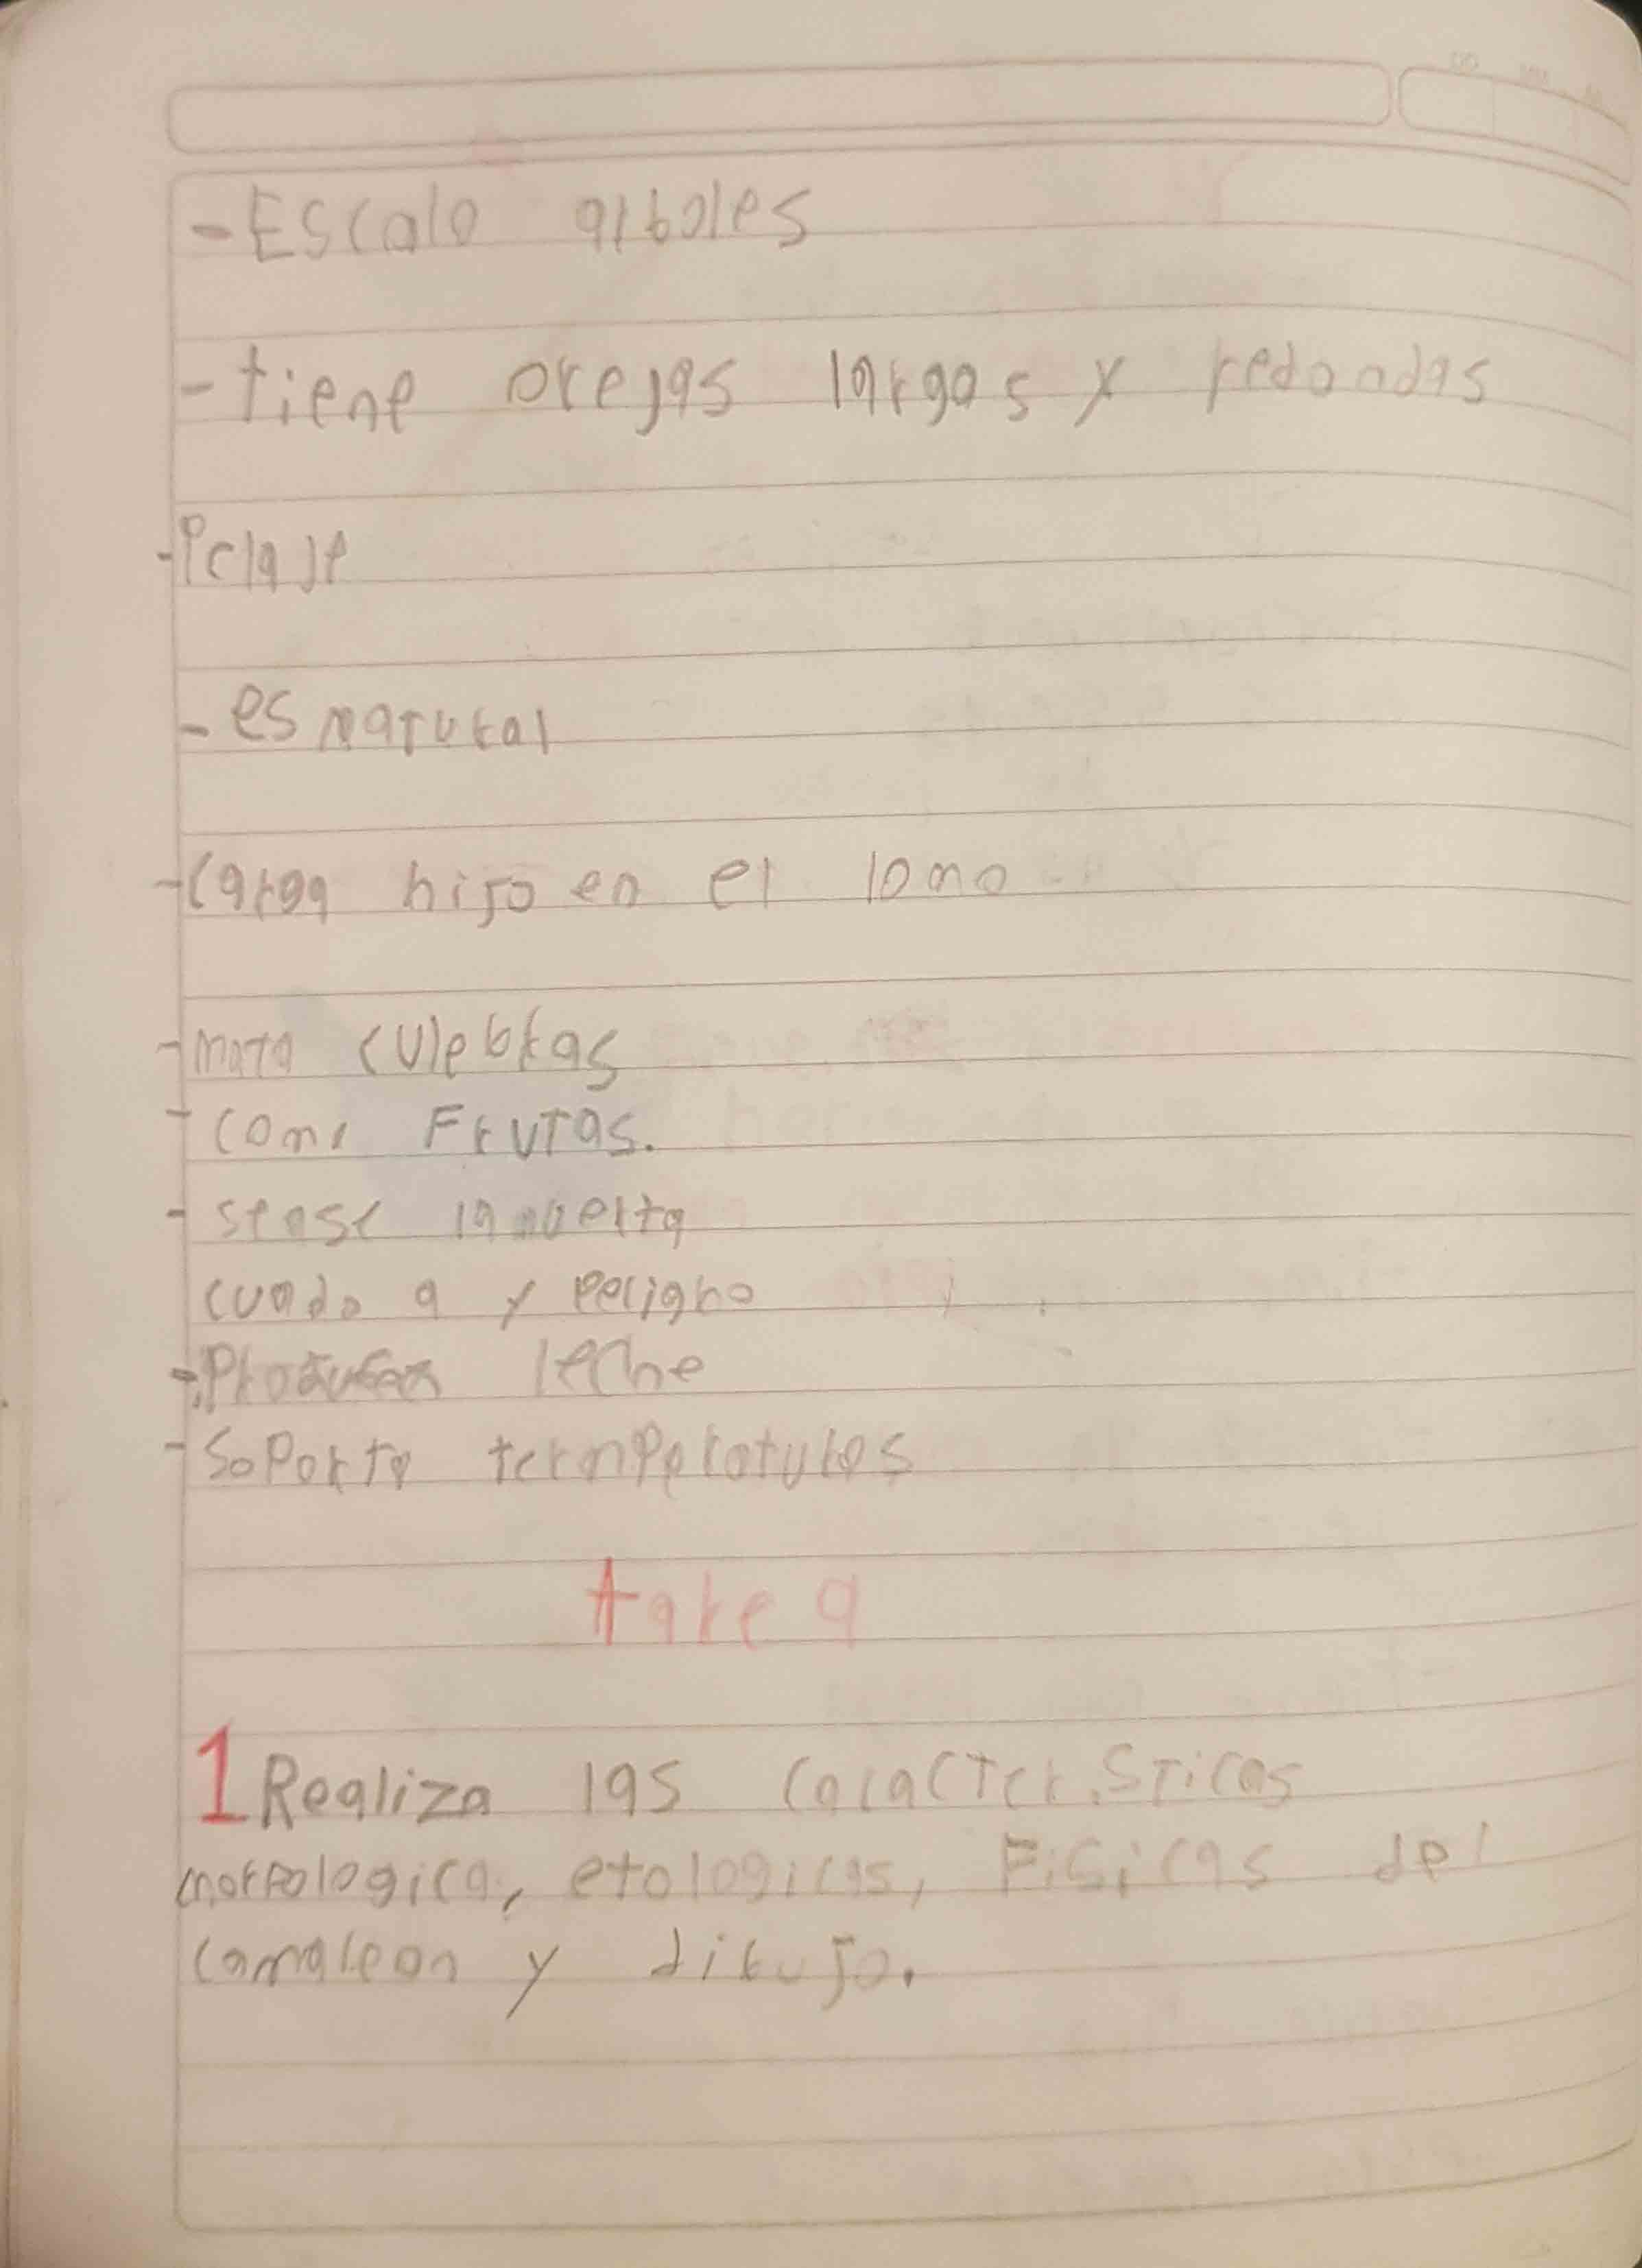 - Escala arboles
- tiene orejas largas y redondas
- Pelaje
- es natural
- Carga hijo en el lomo
- mata culebras
- come Frutas.
- sease la muerta
cuado a y peligro
- Produce leche
- Soporta temperaturas
tarea
1 Realiza las caracteristicas
morfologica, etologicas, Fisicas del
camaleon y dibujo.